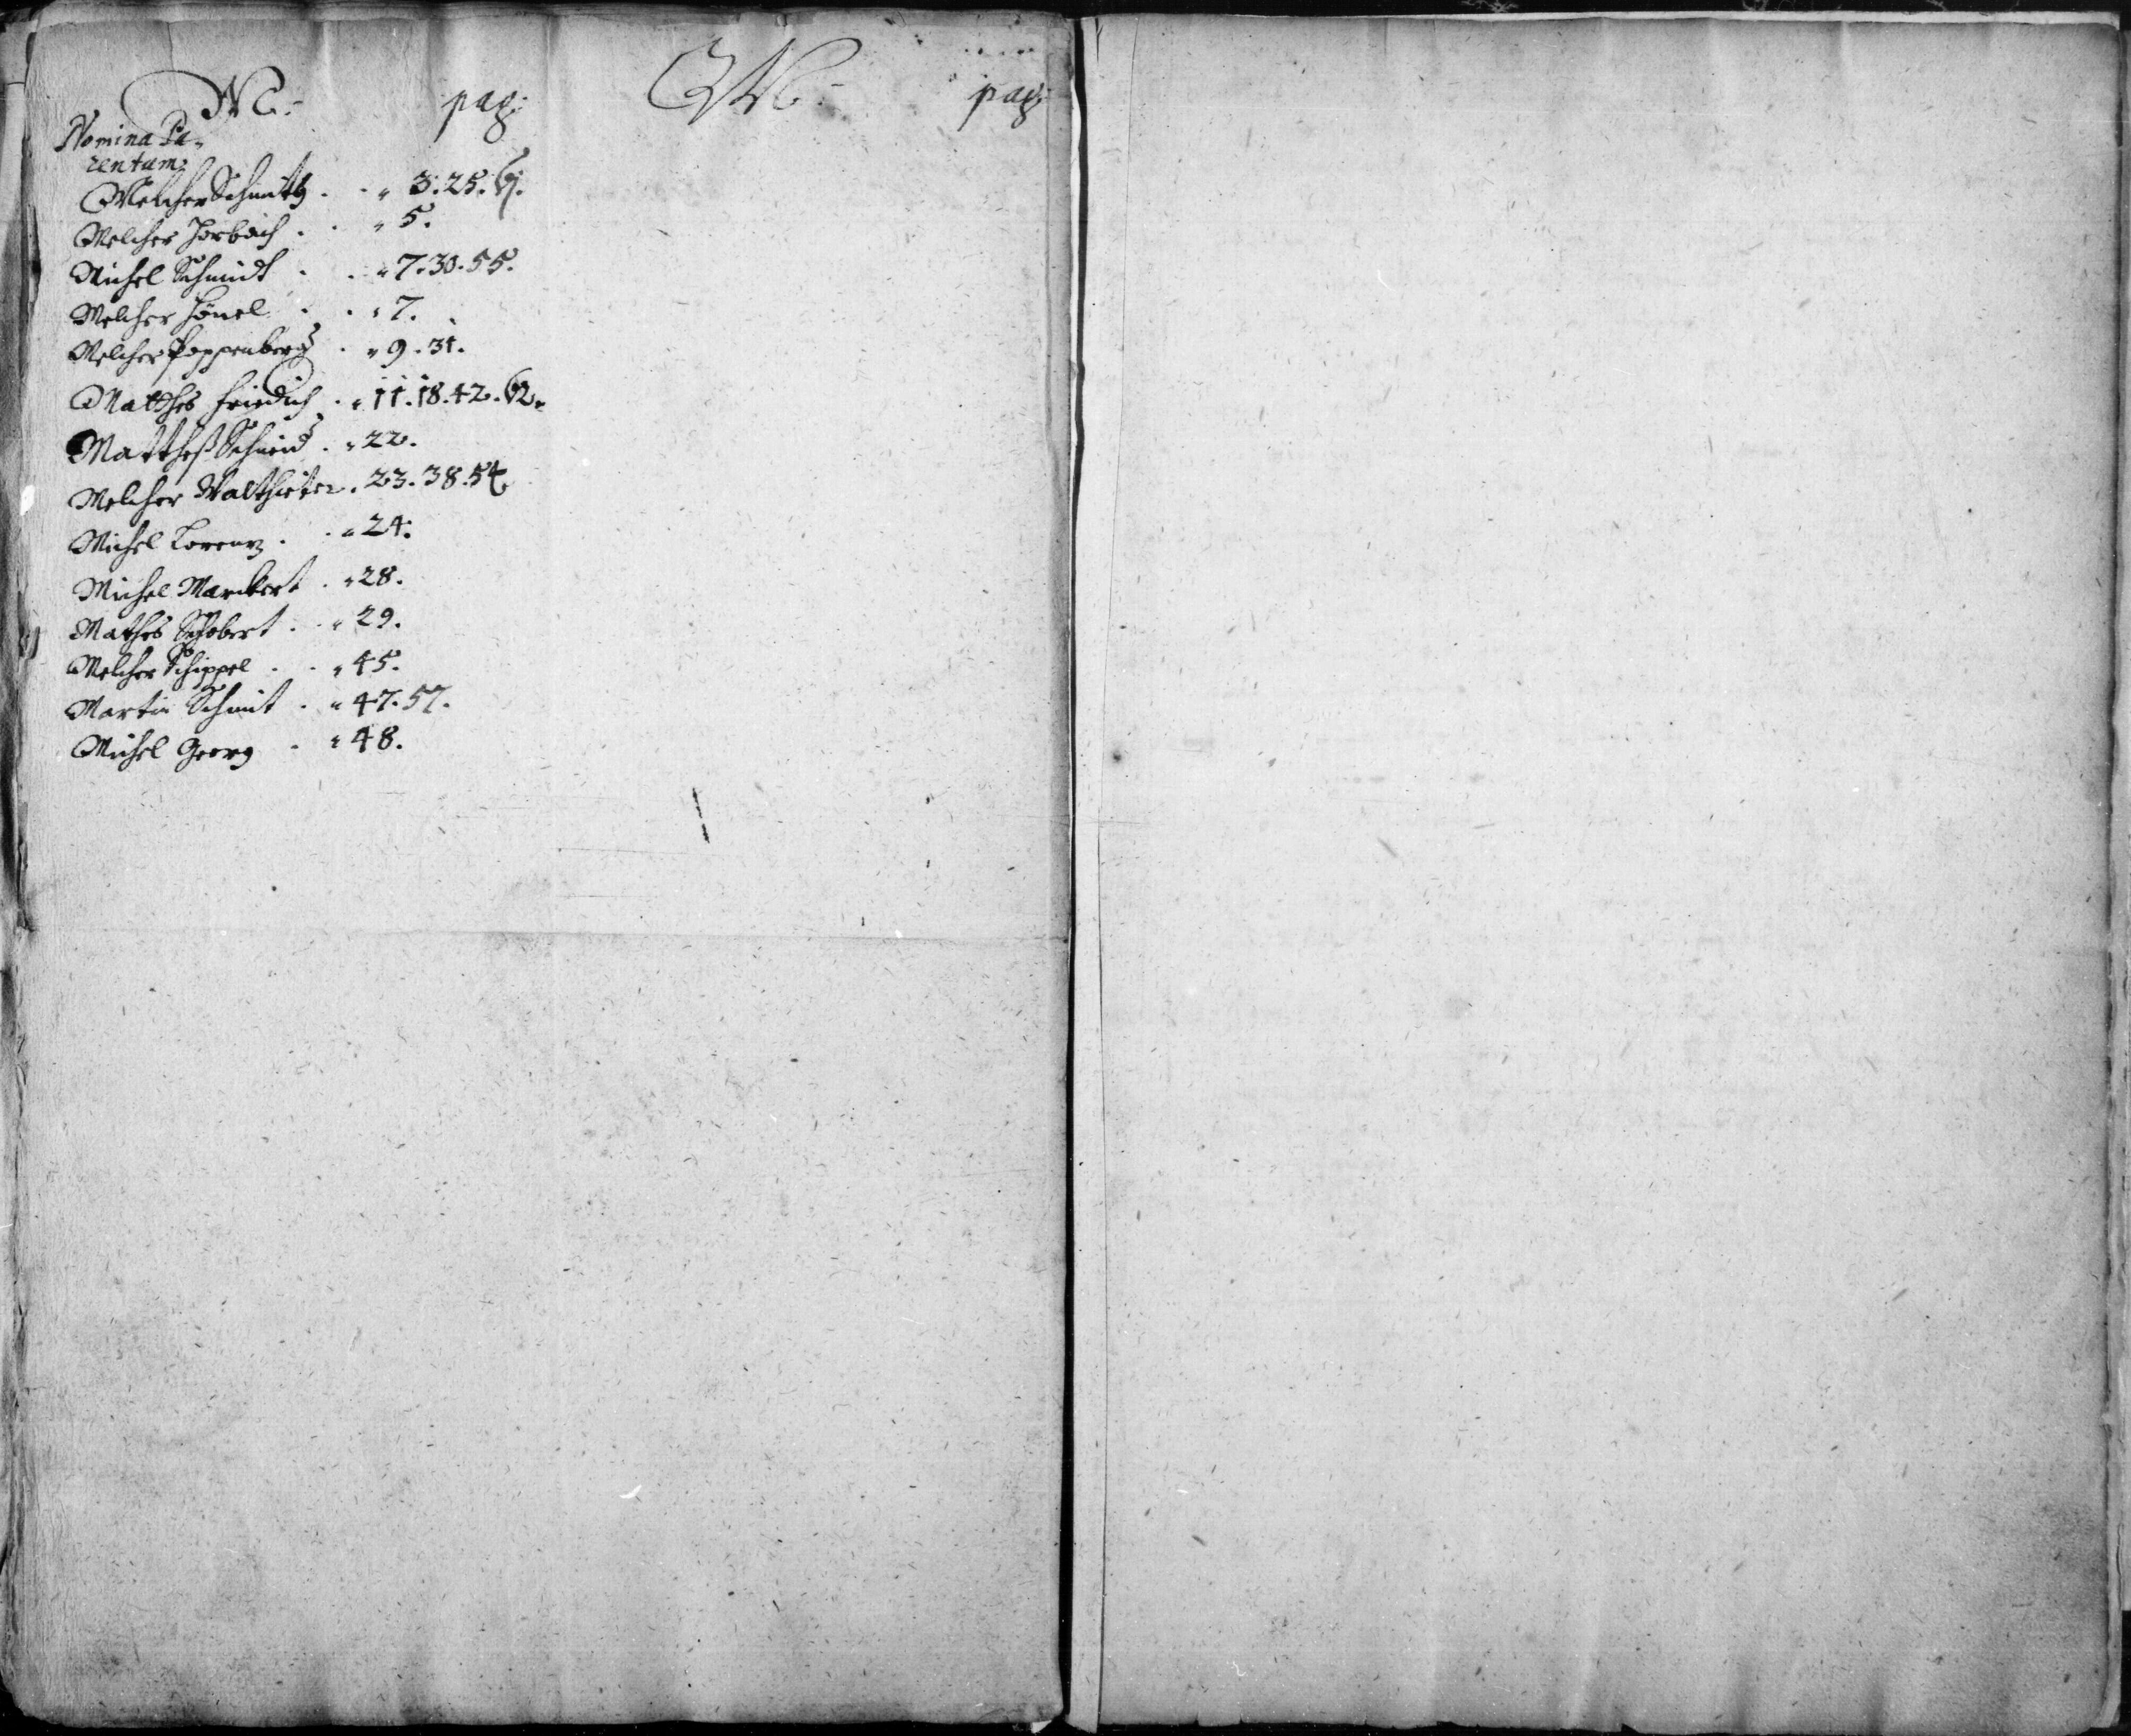 M: pag:
Nomina Pa-
rentum:
Melcher Schmitt . . " 3. 25. 61.
Melcher Horbach . . " 5.
Michel Schmidt . . " 7. 30. 55.
Melcher Hönel . . " 7.
Melcher Poppenberg . " 9. 31.
Matthes Friedrich . " 11. 18. 42. 62.
Mattheß Schmid . " 22.
Melcher Walthieter . 23. 38. 54.
Michel Lorentz . . " 24.
Michel Marckert . " 28.
Mathes Schobert . . " 29.
Melcher Schippel . . " 45.
Martin Schmit . " 47. 57.
Michel Georg . " 48.
M: pag: